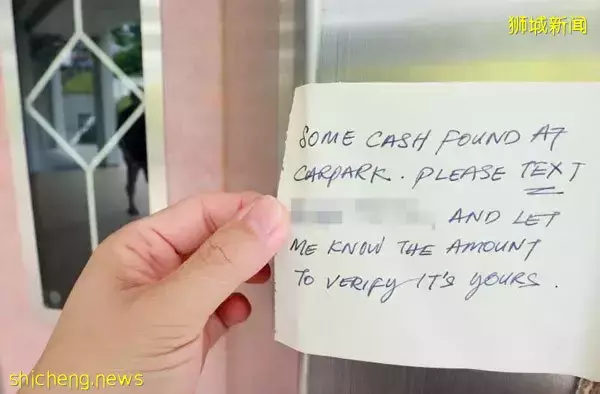 狮城新闻
SOME CASH FOUND AT
CARPARK. PLEASE TEXT
AND LET
ME KNOW THE AMOUNT
TO VERIFY IT'S YOURS.
shicheng.news